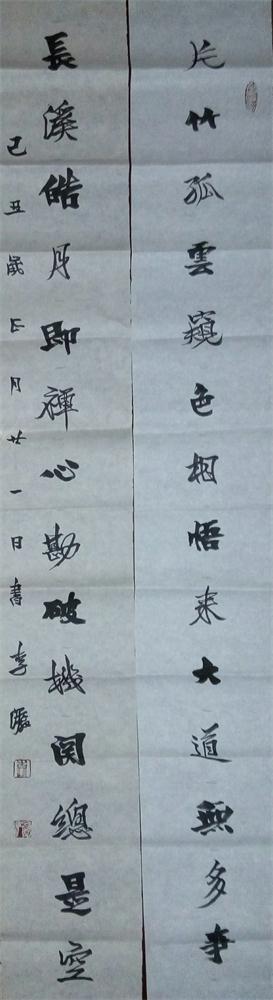 片竹孤雲窺色相悟来大道無多事
長溪皓月即禪心勘破機関總是空
己丑歲正月廿一日書 李